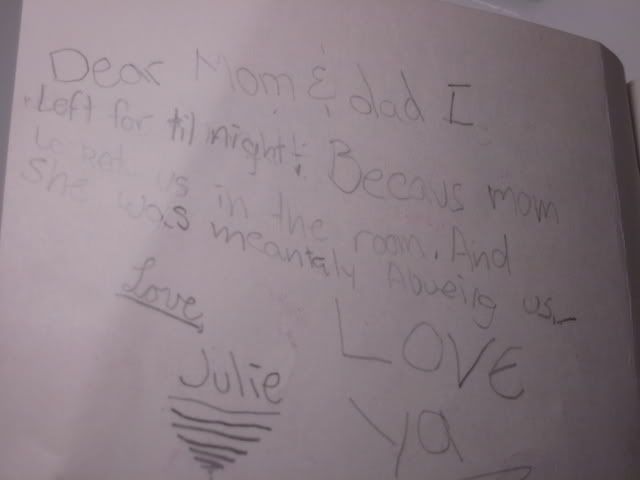 Dear Mom & dad I
Left for til night! Becaus mom
locket us in the room. And
She was meantaly Abueing us.
Love
Julie
LOVE
ya